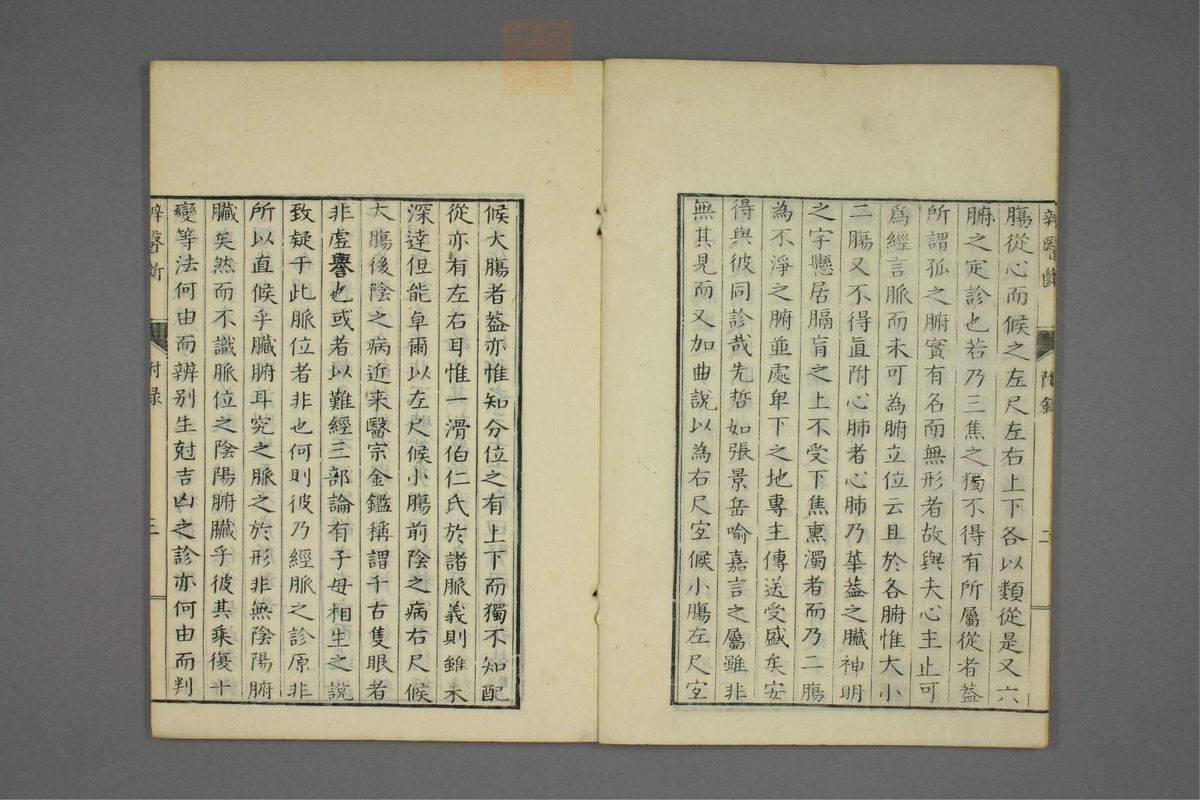 辨醫斷 附錄 二
腸從心而候之左尺左右上下各以類從是又六
腑之定診也若乃三焦之獨不得有所屬從者葢
所謂孤之腑實有名而無形者故與夫心主止可
爲經言脈而未可為腑立位云且於各腑惟大小
二腸又不得眞附心肺者心肺乃華葢之臟神明
之宇懸居膈肓之上不受下焦熏濁者而乃二腸
為不淨之腑並處卑下之地專主傳送受盛矣安
得與彼同診哉先哲如張景岳喻嘉言之屬雖非
無其見而又加曲說以為右尺宜候小腸左尺宜
候大腸者葢亦惟知分位之有上下而獨不知配
從亦有左右耳惟一滑伯仁氏於諸脈義則雖未
深達但能卓爾以左尺候小腸前陰之病右尺候
大腸後陰之病近来醫宗金鑑稱謂千古隻眼者
非虛譽也或者以難經三部論有子母相生之說
致疑于此脈位者非也何則彼乃經脈之診原非
所以直候乎臟腑耳究之脈之於形非無陰陽腑
臟矣然而不識脈位之陰陽腑臟乎彼其乘復十
變等法何由而辨别生尅吉凶之診亦何由而判
辨醫斷 附録 三